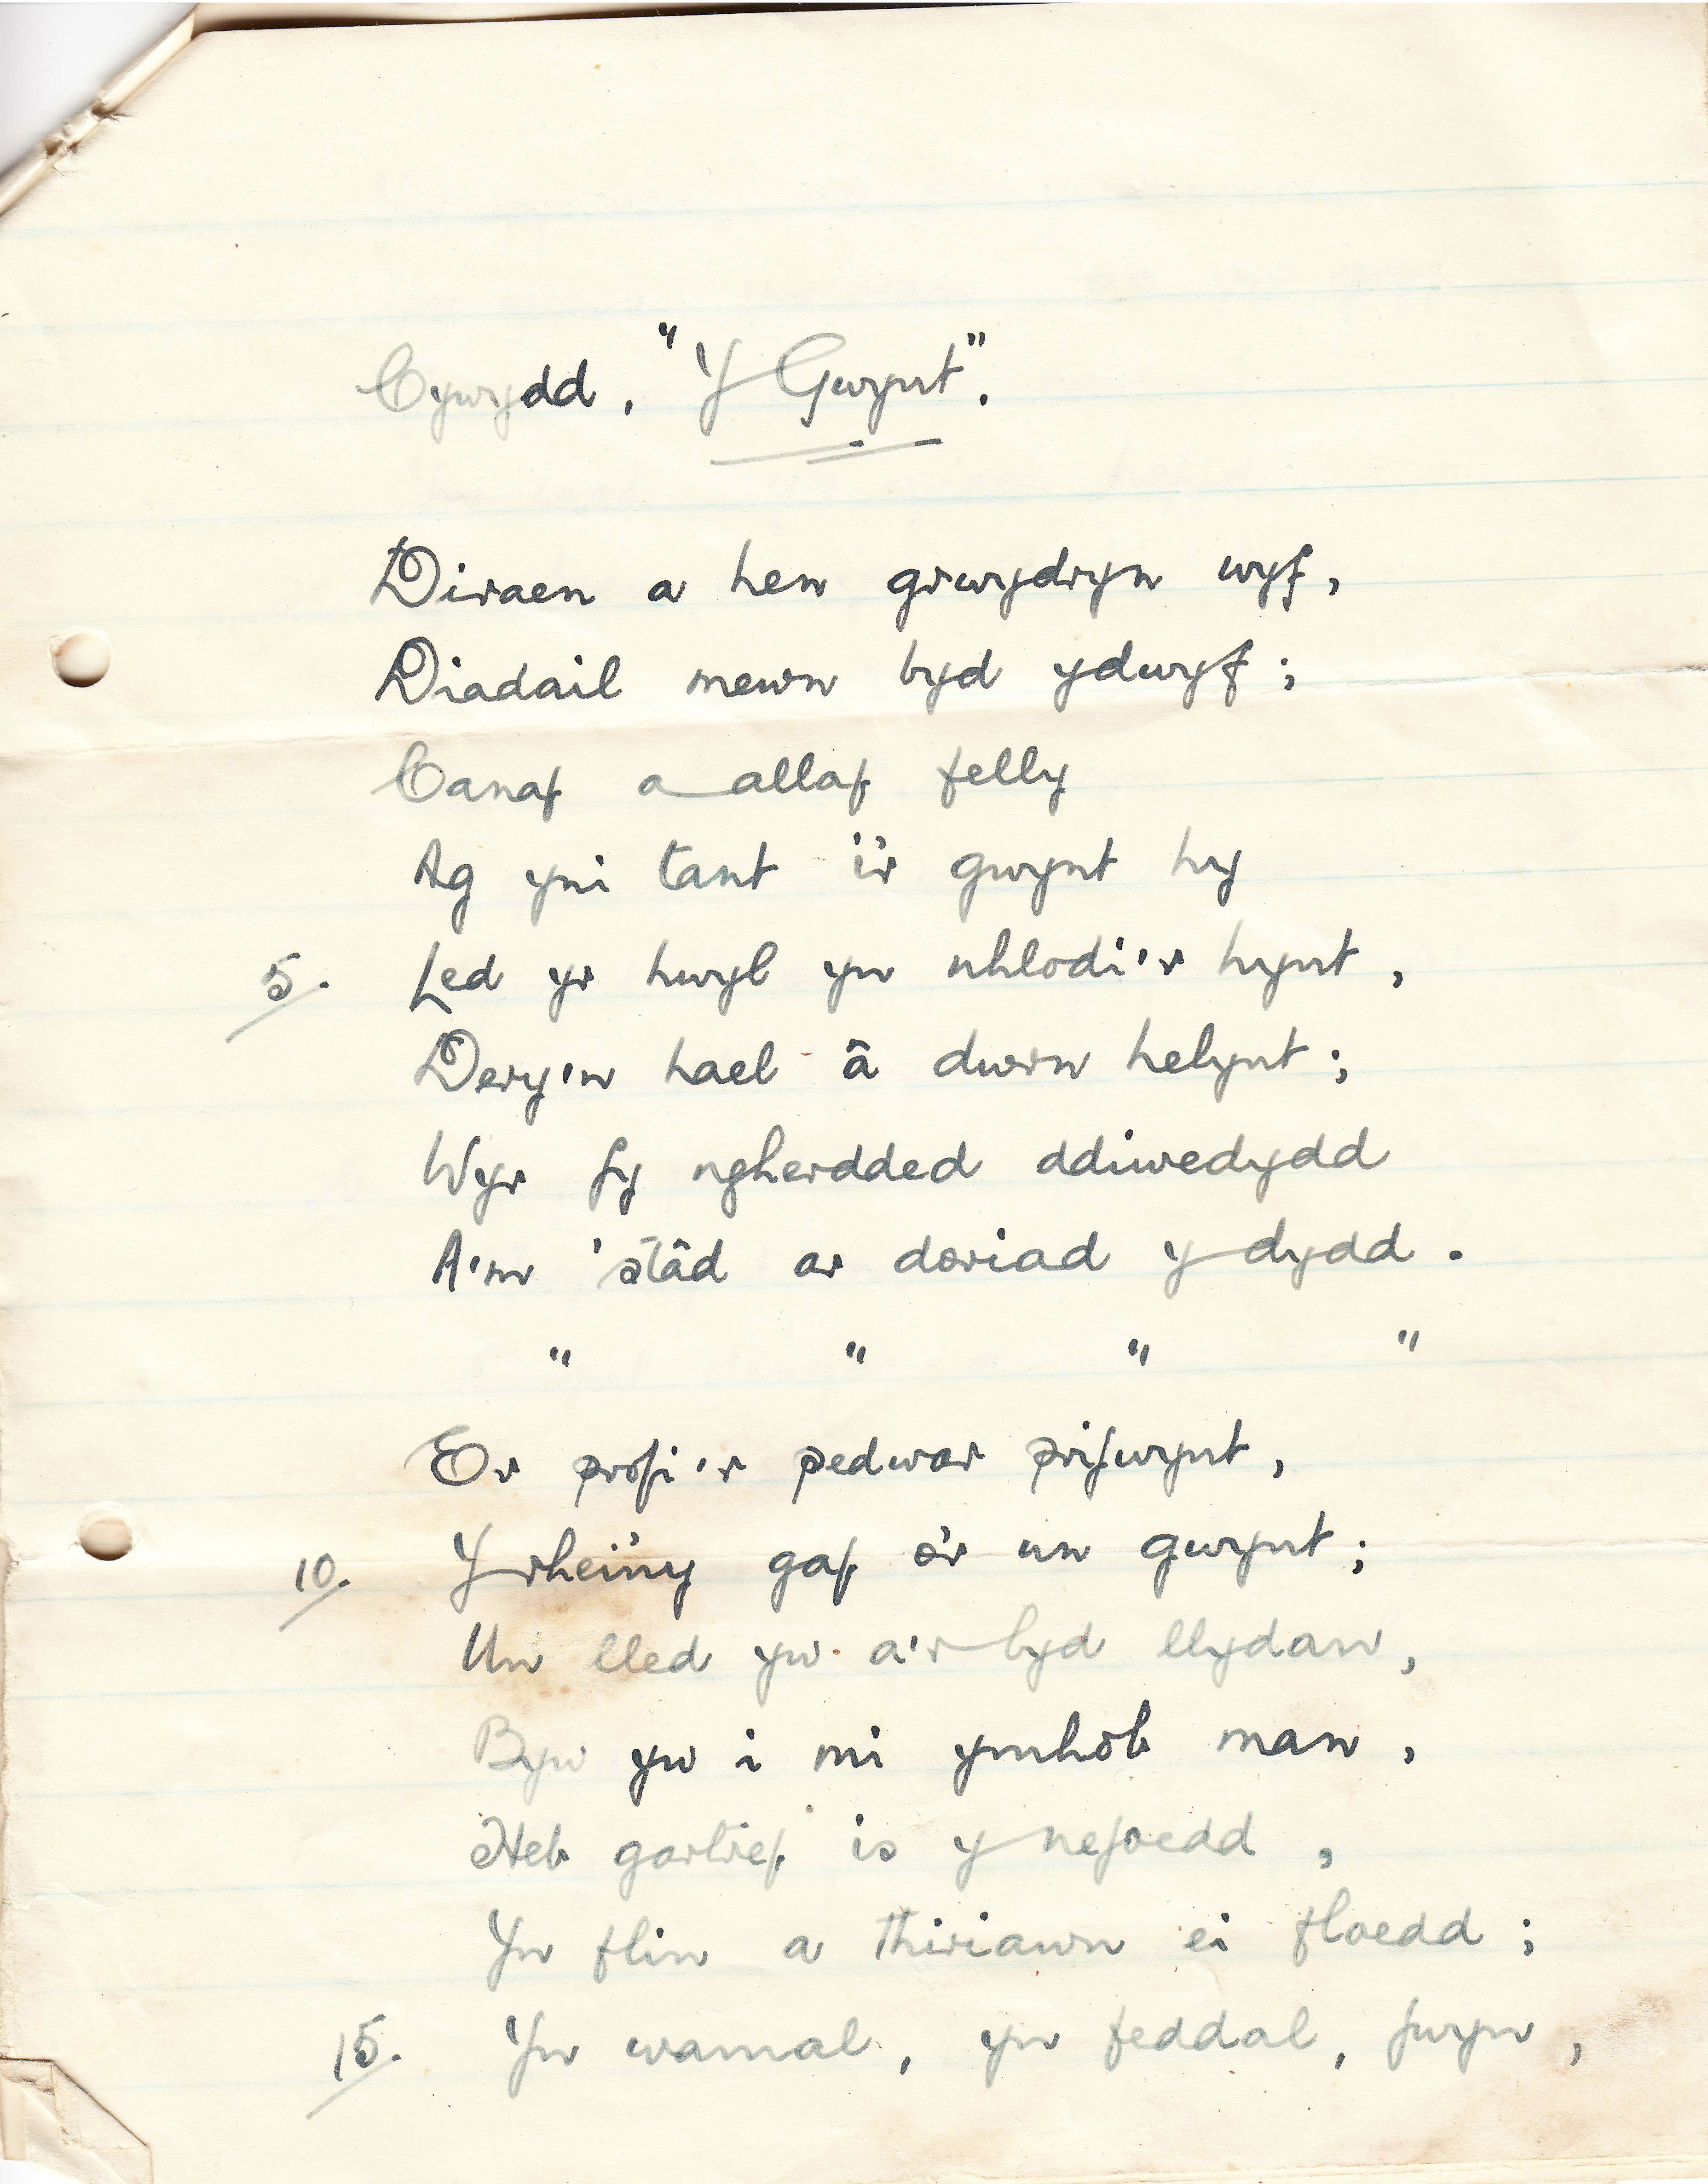 Cywydd, "Y Gwynt".
Diraen a hen grwydryn wyf,
Diadail mewn byd ydwyf;
Canaf a allaf felly
Ag yni tant i'r gwynt hy
5. Led yr hwyl yn nhlodi'r hynt,
Dery'n hael â dwrn helynt;
Wyr fy ngherdded ddiwedydd
A'm 'stâd ar doriad y dydd.
" " " "
Er profi'r pedwar prifwynt,
10. Y rheiny gaf o'r un gwynt;
Un lled yw a'r byd llydan,
Byw yw i mi ymhob man,
Heb gartref is y nefoedd,
Yn flin a thiriawn ei floedd;
15. Yn wamal, yn feddal, fwyn,